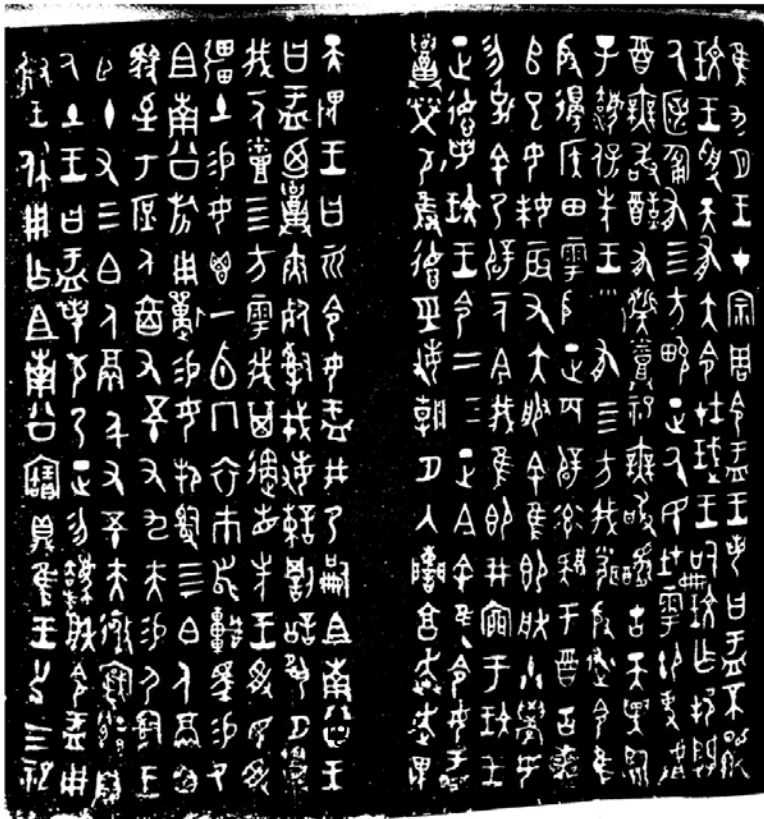 隹九月王才宗周令盂王若曰盂不顯
玟王受天有大令在珷王嗣玟乍邦闢
氒匿匍有四方畯正氒民在雩御事
酉無敢酖有髭烝祀無敢擾古天異臨
子灋保先王有四方我聞殷述令隹
殷邊侯田雩殷正百辟率肄于酉古喪
𠂤巳女妹辰又大服余隹即朕小學女
勿剋余乃辟一人今我隹即井䆾于玟王
正德若玟王令二三正今余隹令女盂
召榮敬雝德巠敏朝夕入讕享奔走畏
天畏王曰而令女盂井乃嗣且南公王
曰盂廼召夾死司戎敏諫罰訟夙夕召
我一人烝四方雩我其遹省先王受民受
疆土易女鬯一卣冂衣巿舄車馬易乃
且南公旂用狩易女邦司四白人鬲自
馭至于庶人六百又五十又九夫易尸司王
臣十又三白人鬲千又五十夫遷自
氒土王曰盂若芍乃正勿灋朕令盂用
對王休用乍且南公寶鼎隹王廿又三祀